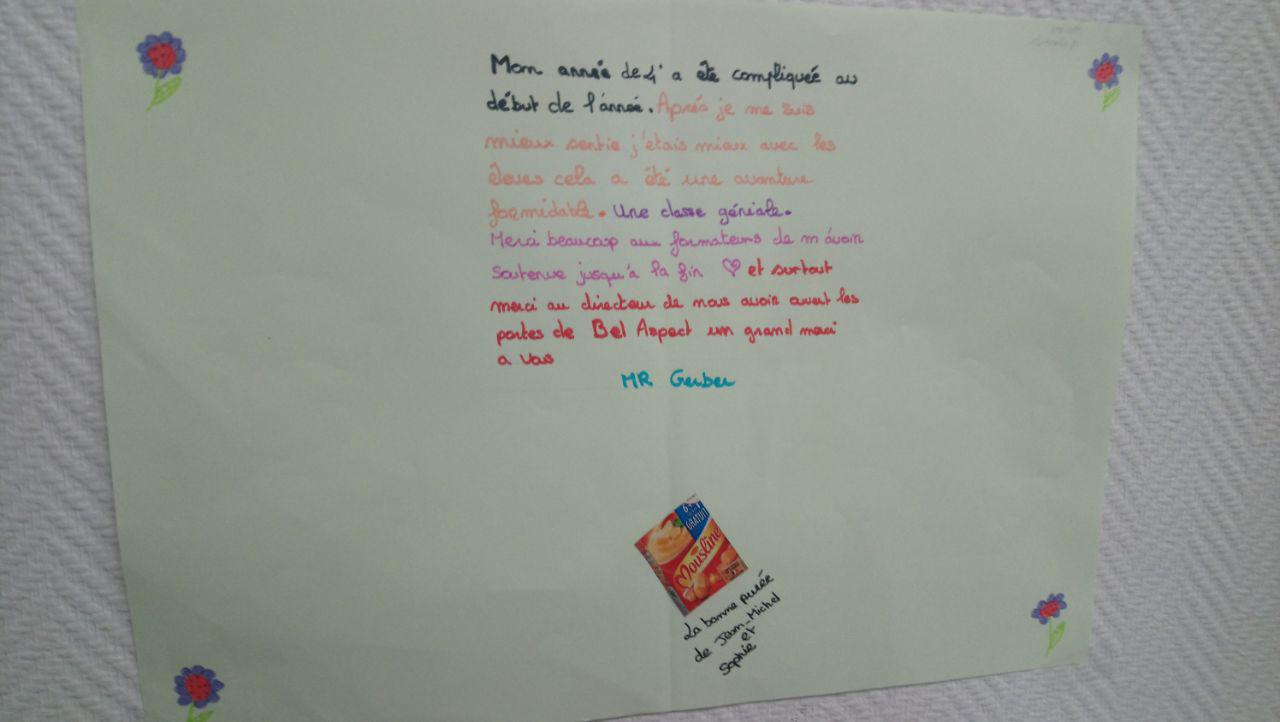 Mon année de 4° a été compliquée au
début de l'année. Après je me suis
mieux sentie j'étais mieux avec les
élèves cela a été une avanture
formidable. Une classe géniale.
Merci beaucoup aux formateurs de m'avoir
soutenue jusqu'à la fin ♡ et surtout
merci au directeur de nous avoir ouvert les
portes de Bel Aspect un grand merci
a vous
MR Gerber
GRATUIT
Mousline
La bonne purée
de Jean-Michel
et
Sophie